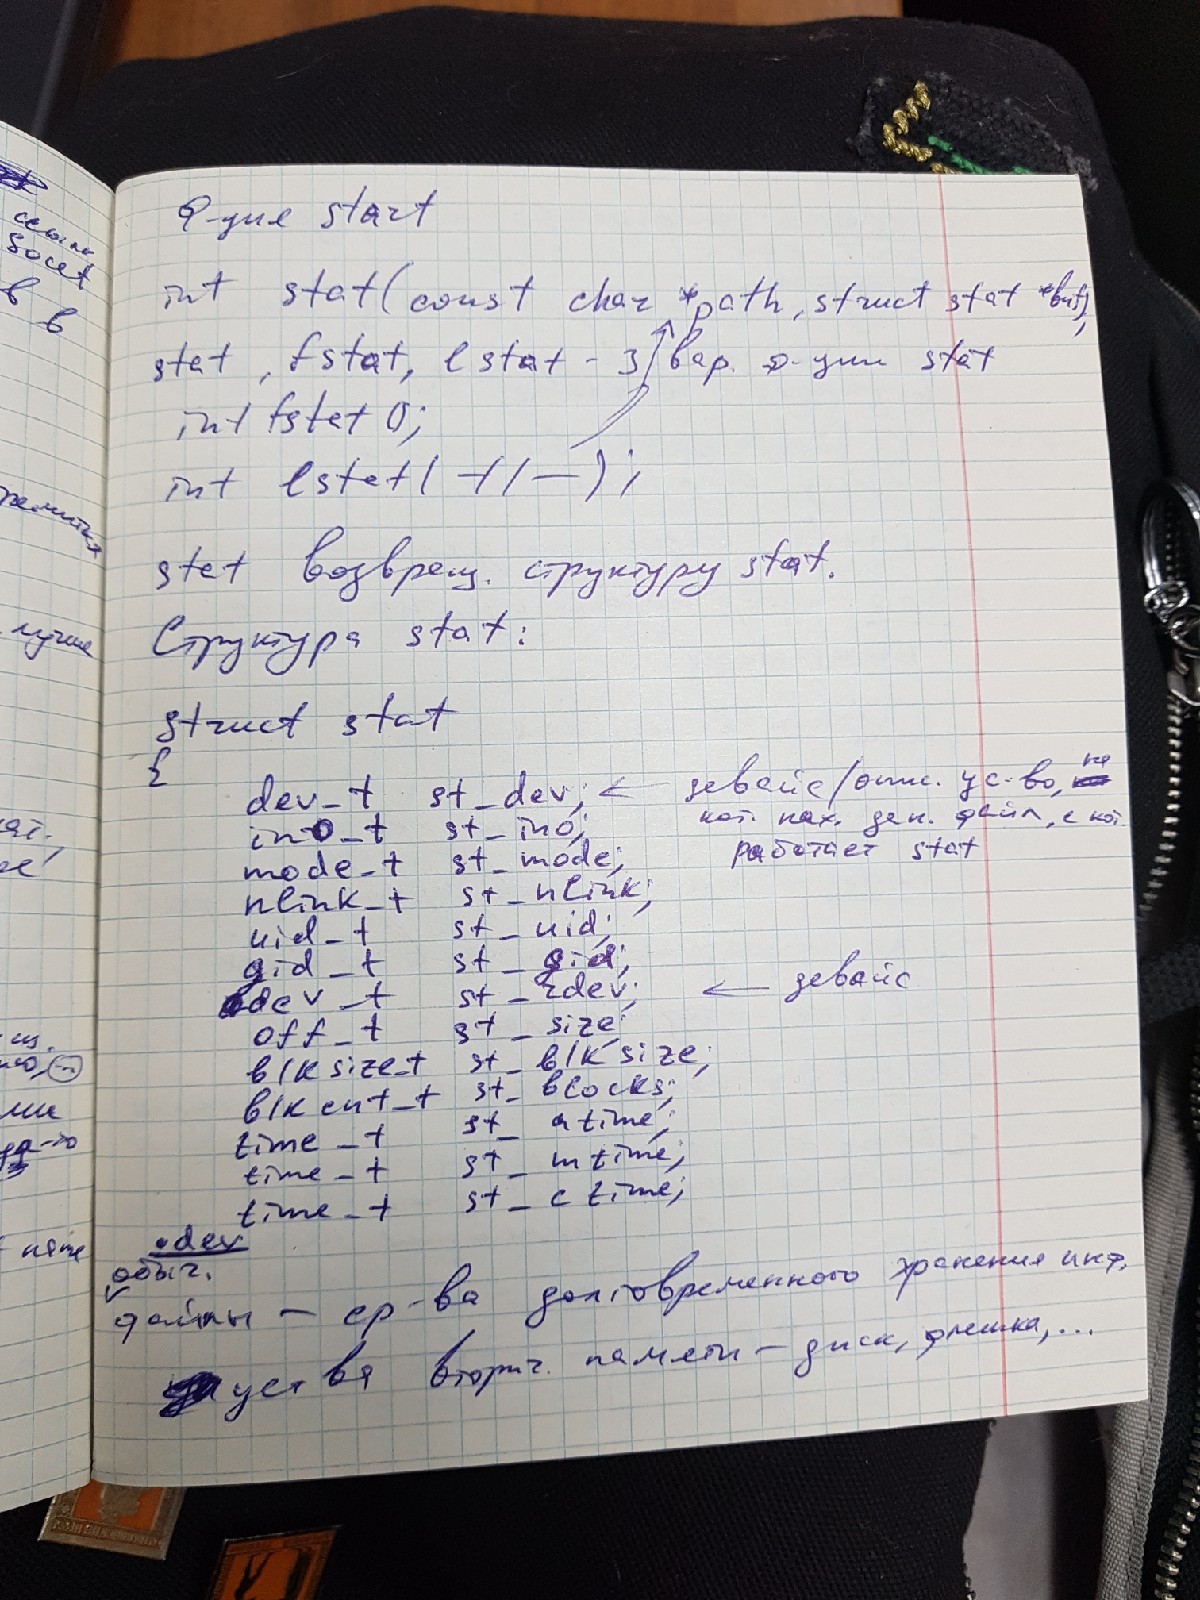 ссылк
socet
в в
лучше
ми
Ф-ция start
int stat(const char *path, struct stat *buf);
stat, fstat, lstat - 3 вар. ф-ции stat
int fstat();
int lstat(-//-);
stat возвращ. структуру stat.
Структура stat:
struct stat
{
dev_t st_dev; ← девайс/опис. ус-во, на
ino_t st_ino; кот. нах. дан. файл, с кот.
mode_t st_mode; работает stat
nlink_t st_nlink;
uid_t st_uid;
gid_t st_gid;
dev_t st_rdev; ← девайс
off_t st_size;
blksize_t st_blksize;
blkcnt_t st_blocks;
time_t st_atime;
time_t st_mtime;
time_t st_ctime;
•dev
обыч.
файлы — ср-ва долговременного хранения инф.
уст-ва вторич. памяти — диск, флешка, ...